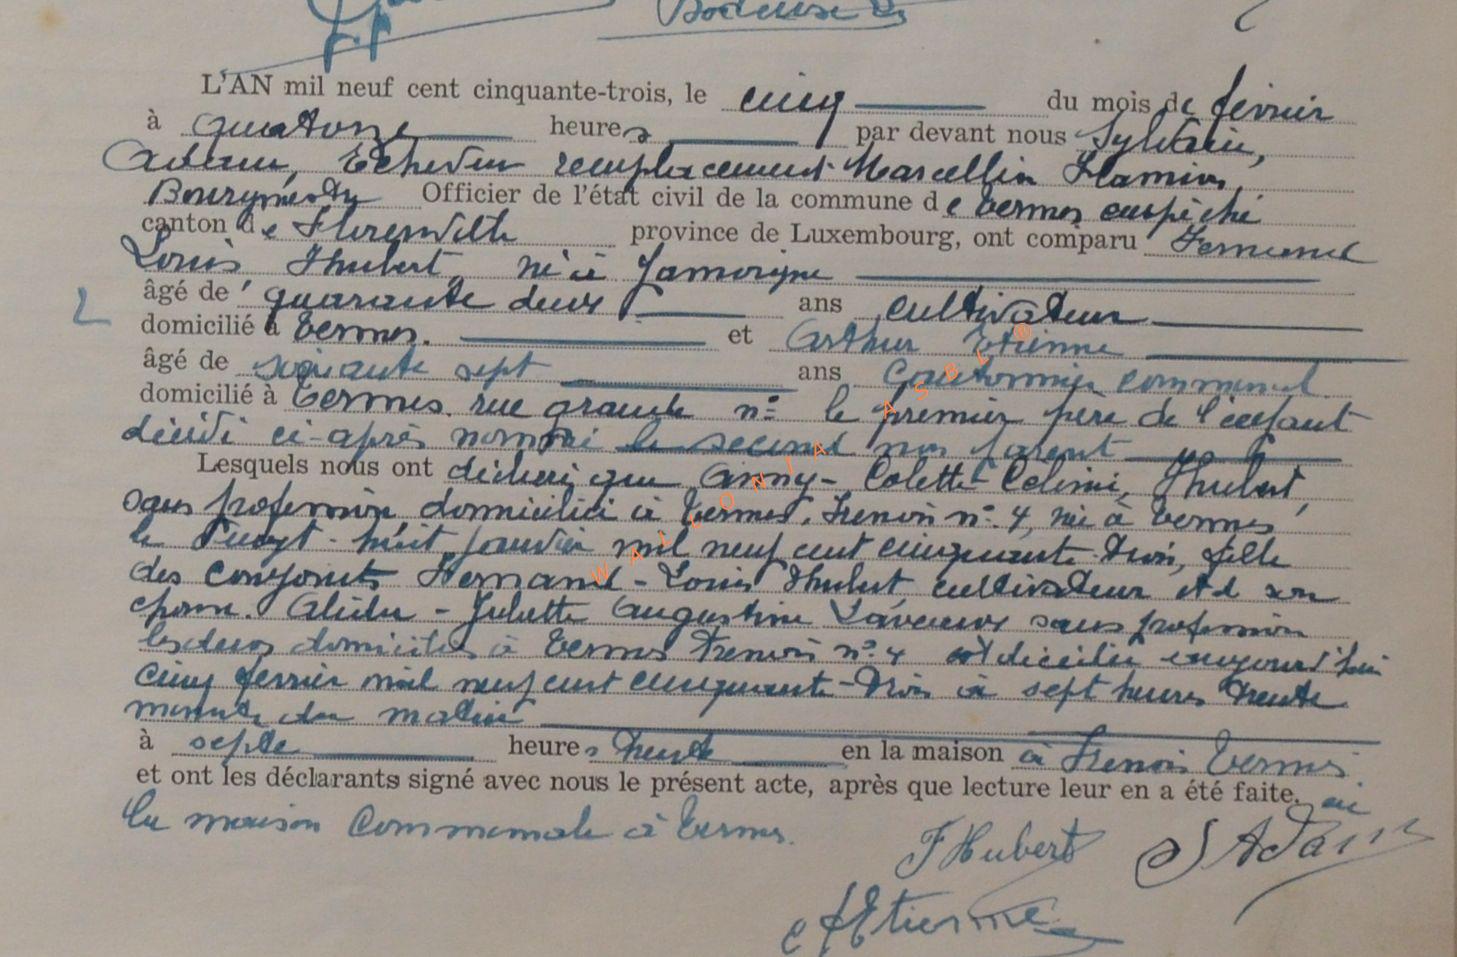 Bodeuse
L'AN mil neuf cent cinquante-trois, le cinq du mois de février
à quatorze heures par devant nous Sylvain,
Adam, Echevin remplacement Marcellin Flamion,
Bourgmestre Officier de l'état civil de la commune de Termes empêché
canton de Florenville province de Luxembourg, ont comparu Fernand
Louis Hubert, né à Jamoigne
âgé de quarante deux ans cultivateur
domicilié à Termes. et Arthur Etienne
âgé de soixante sept ans Cantonnier communal
domicilié à Termes. rue grande n° le premier père de l'enfant
décédé ci-après nommé le second non parent
Lesquels nous ont déclaré que Anny-Colette-Celinie, Hubert,
sans profession, domiciliée à Termes, Frenois n° 4, née à Termes
le vingt-huit janvier mil neuf cent cinquante-trois, fille
des conjoints Fernand-Louis Hubert cultivateur et d son
épouse. Alida-Juliette Augustine Laveaux sans profession
les deux domiciliés à Termes Frenois n° 4 est décédée aujourd'hui
cinq février mil neuf cent cinquante-trois à sept heures trente
minutes du matin
à septe heures trente en la maison à Frenois Termes
et ont les déclarants signé avec nous le présent acte, après que lecture leur en a été faite. en
la maison Communale à Termes.
F Hubert S Adam
Etienne
WALLONIA ASBL ®